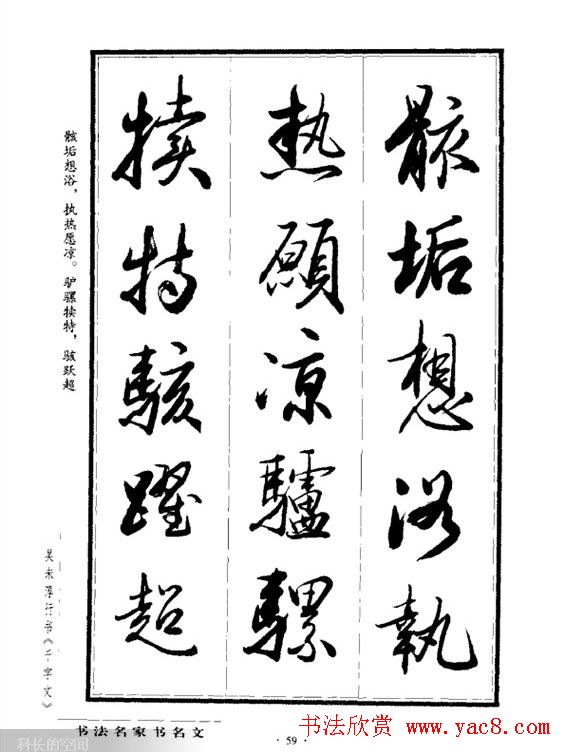 骸垢想浴執
熱願凉驢騾
犢特駭躍超
骸垢想浴，执热愿凉。驴骡犊特，骇跃超
吴未淳行书《千字文》
书法名家书名文
·59·
科长的空间
书法欣赏 www.yac8.com